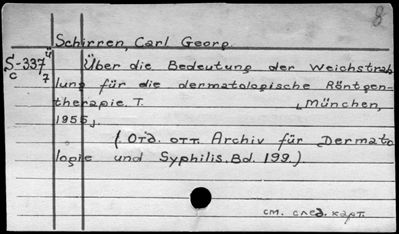 8
Schirren, Carl Georg.
S-337 Über die Bedeutung der Weichstrah
c 7 lung für die dermatologische Röntgen-
therapie. T. [München,
1955].
(Отд. отт. Archiv für Dermato
logie und Syphilis. Bd. 199.)
см. след. карт.